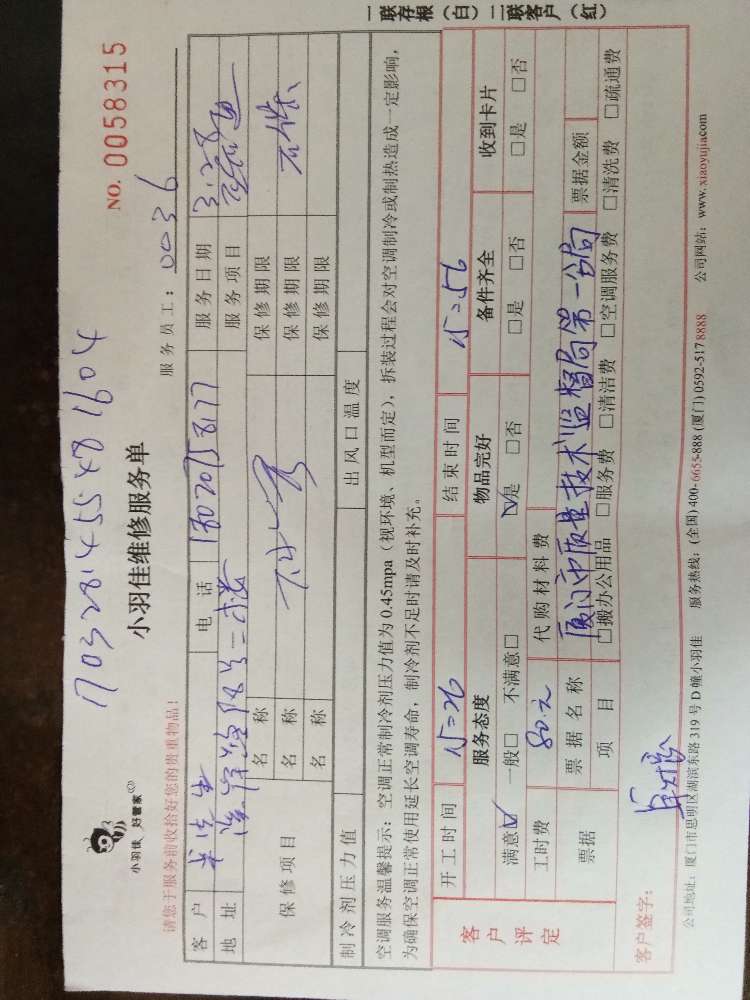 一联存根（白）二联客户（红）
1703281455481604
小羽佳 好管家
小羽佳维修服务单
NO. 0058315
服务员工：0036
请您于服务前收拾好您的贵重物品！
客户 电话 服务日期 3.28
地址 服务项目
保修项目 名称 保修期限 不保
名称 保修期限
名称 保修期限
制冷剂压力值 出风口温度
空调服务温馨提示：空调正常制冷剂压力值为0.45mpa（视环境、机型而定），拆装过程会对空调制冷或制热造成一定影响，
为确保空调正常使用延长空调寿命，制冷剂不足时请及时补充。
开工时间 15=26 结束时间 15=56
客户评定 服务态度 物品完好 备件齐全 收到卡片
满意☑ 一般□ 不满意□ ☑是 □否 □是 □否 □是 □否
工时费 80.元 代购材料费
票据 票据名称 厦门市质量技术监督局第一分局 票据金额
项目 □搬办公用品 □服务费 □清洁费 □空调服务费 □清洗费 □疏通费
客户签字：
公司地址：厦门市思明区湖滨东路319号D幢小羽佳 服务热线：(全国)400-6655-888 (厦门)0592-5178888 公司网站：www.xiaoyujia.com